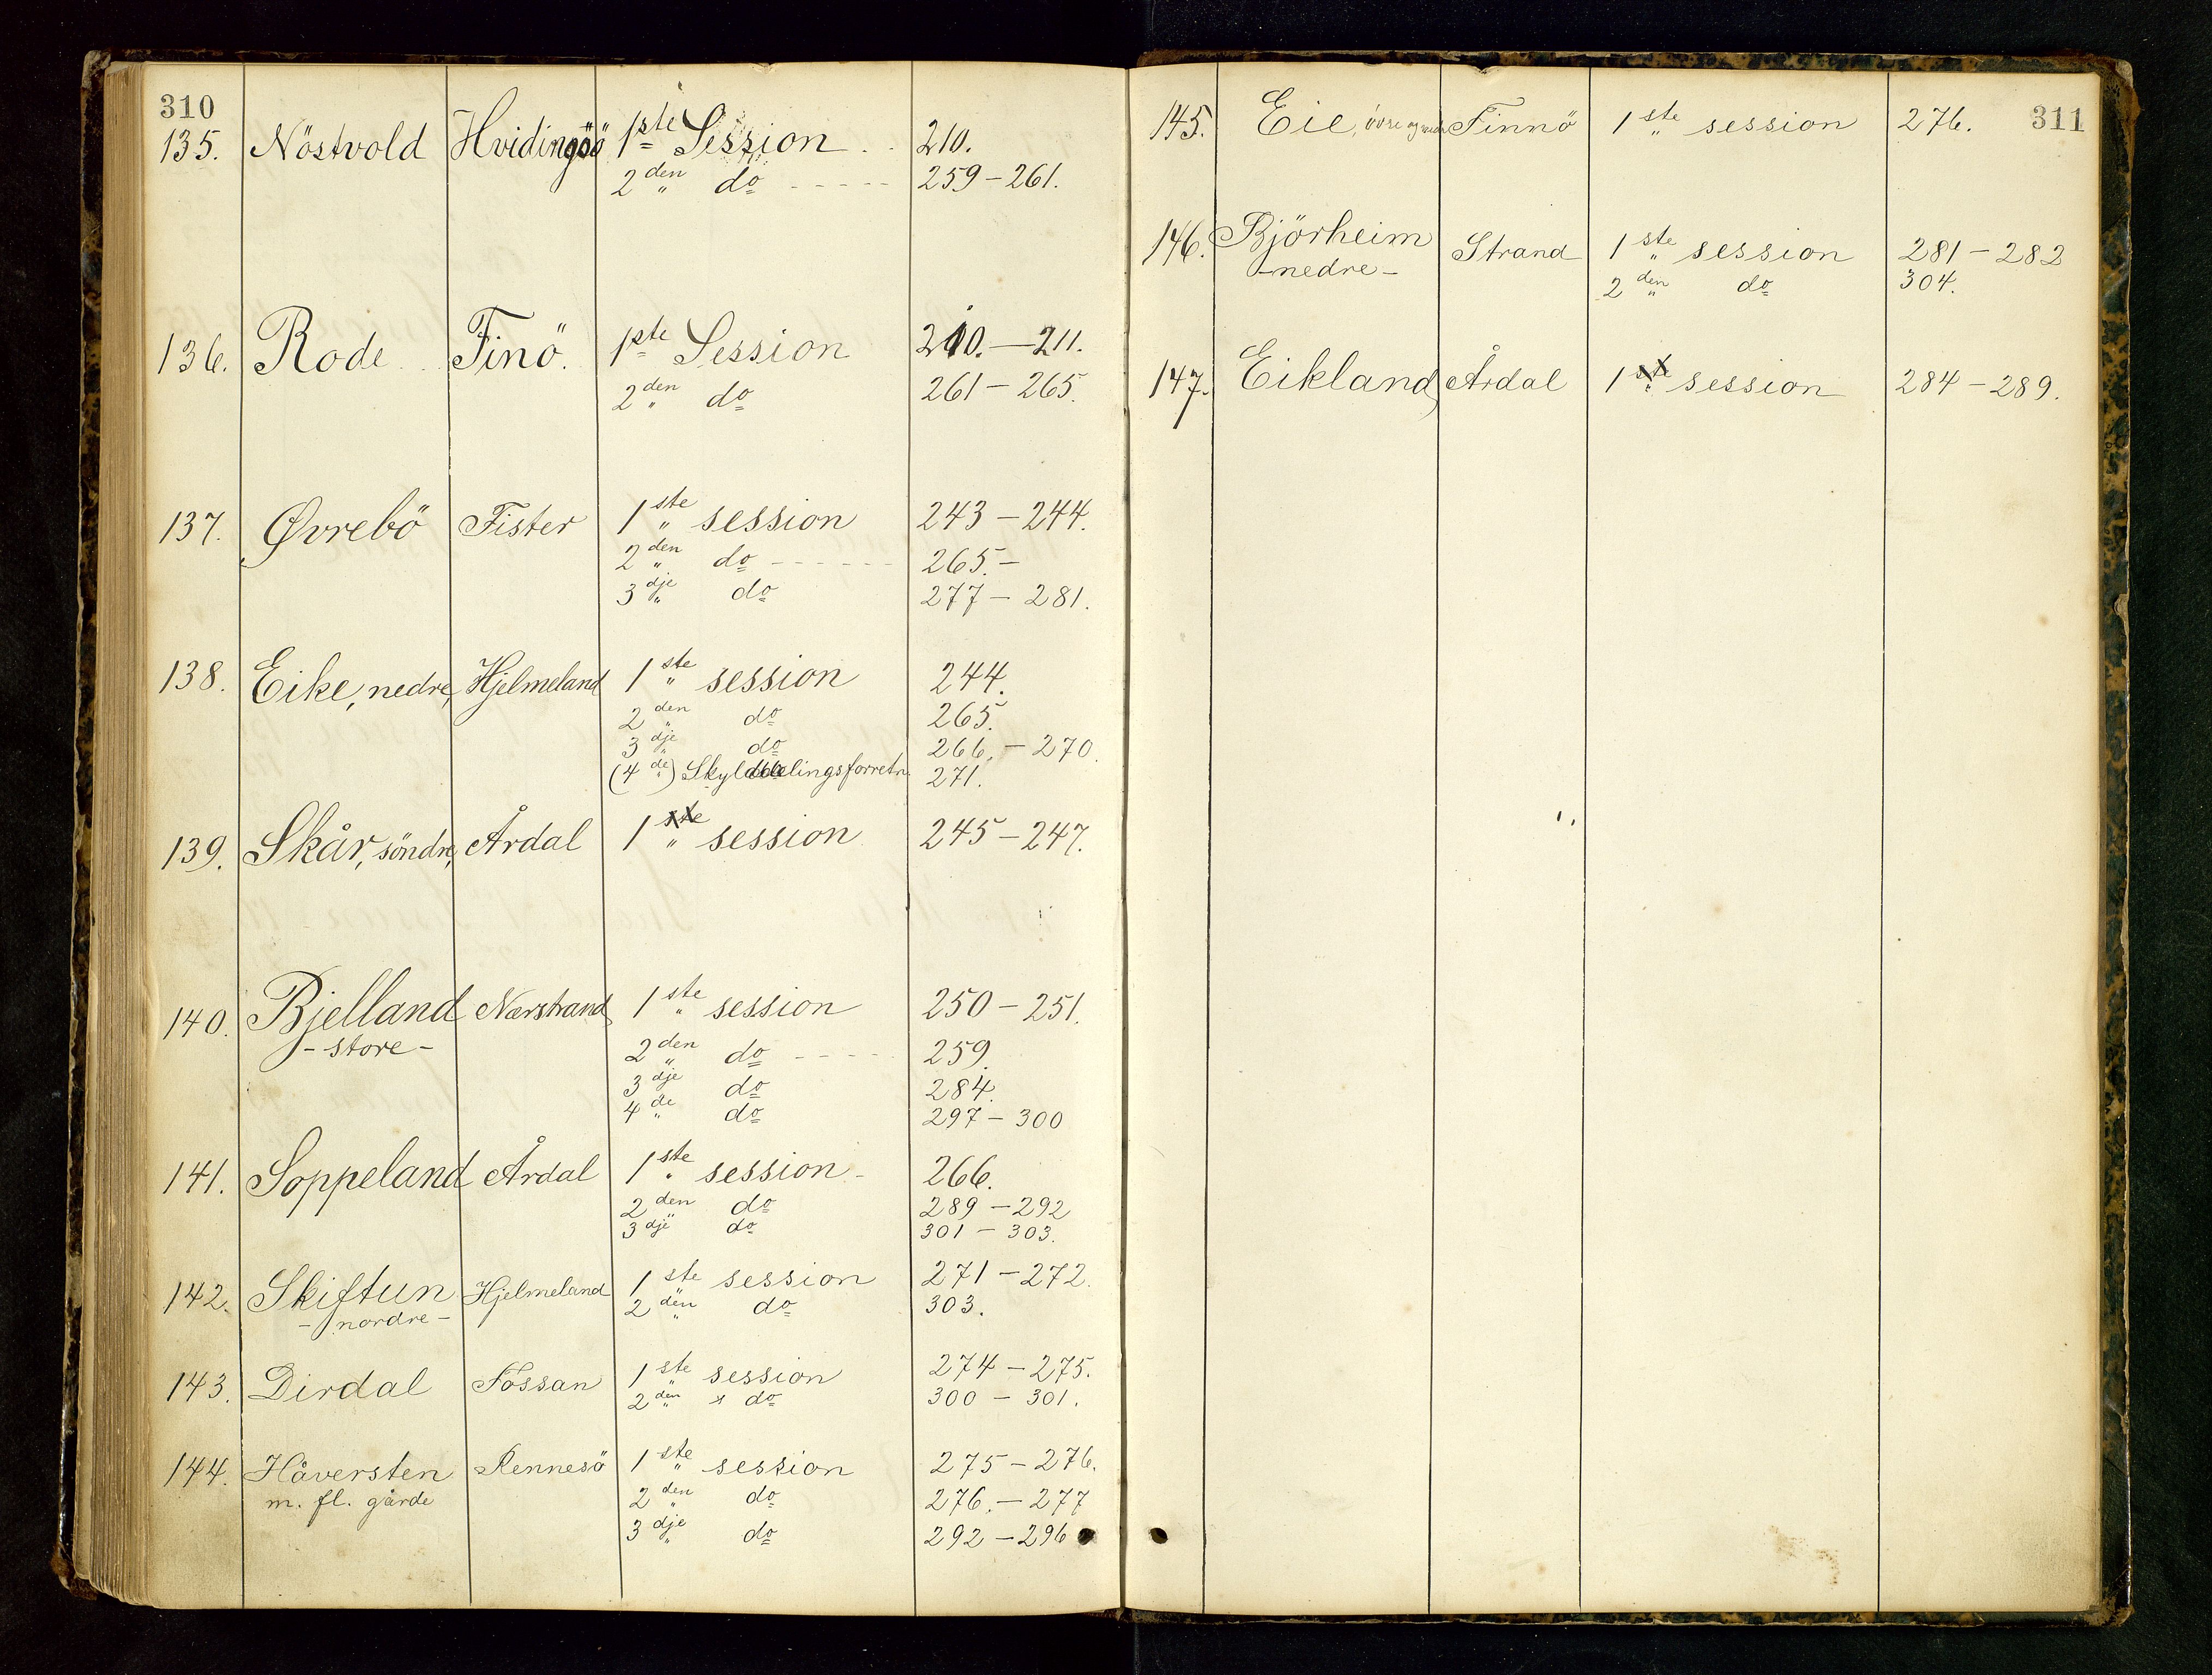 310
135. Nöstvold Hvidingsö 1ste Session . . 210.
2den do - - - - - 259 - 261.
136. Rode Finö. 1ste Session 210. - 211.
2den do 261 - 265.
137. Øvrebö Fister 1ste session 243 - 244.
2den do - - - - - - 265. -
3dje do 277 - 281.
138. Eike, nedre, Hjelmeland 1ste session 244.
2den do 265.
3dje do 266. - 270.
(4de) Skylddelingsforretn. 271.
139. Skår, söndre, Årdal 1 session 245 - 247.
140. Bjelland Nærstrand 1ste session 250 - 251.
- store - 2den do - - - - 259.
3dje do 284.
4de do 297 - 300
141. Soppeland Årdal 1ste session - 266.
2den do 289 - 292
3dje do 301 - 303.
142. Skiftun Hjelmeland 1ste session 271 - 272.
- nordre - 2den do 303.
143. Dirdal Fossan 1ste session 274 - 275.
2den do 300 - 301.
144. Håversten Rennesö 1ste session 275 - 276.
m. fl. gårde 2den do 276. - 277
3dje do 292 - 296
311
145. Eie, övre og nedre Finnö 1ste session 276.
146. Bjørheim Strand 1ste session 281 - 282
- nedre - 2den do 304.
147. Eikland, Årdal 1 session 284 - 289.